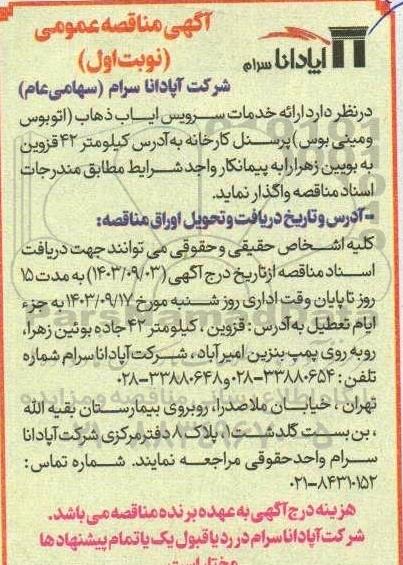 آپادانا سرام
آگهی مناقصه عمومی
(نوبت اول)
شرکت آپادانا سرام (سهامی عام)
درنظر دارد ارائه خدمات سرویس ایاب ذهاب (اتوبوس
ومینی بوس) پرسنل کارخانه به آدرس کیلومتر ۴۲ قزوین
به بویین زهرا را به پیمانکار واجد شرایط مطابق مندرجات
اسناد مناقصه واگذار نماید.
-آدرس و تاریخ دریافت و تحویل اوراق مناقصه:
کلیه اشخاص حقیقی و حقوقی می توانند جهت دریافت
اسناد مناقصه از تاریخ درج آگهی (۱۴۰۳/۰۹/۰۳) به مدت ۱۵
روز تا پایان وقت اداری روز شنبه مورخ ۱۴۰۳/۰۹/۱۷ به جزء
ایام تعطیل به آدرس: قزوین، کیلومتر ۴۲ جاده بوئین زهرا،
روبه روی پمپ بنزین امیرآباد، شرکت آپادانا سرام شماره
تلفن: ۳۳۸۸۰۶۵۴-۰۲۸ و ۳۳۸۸۰۶۴۸-۰۲۸
تهران، خیابان ملاصدرا، روبروی بیمارستان بقیه الله
، بن بست گلدشت ۱، پلاک ۸ دفتر مرکزی شرکت آپادانا
سرام واحد حقوقی مراجعه نمایند. شماره تماس:
۰۲۱-۸۴۳۱۰۱۵۲
هزینه درج آگهی به عهده برنده مناقصه می باشد.
شرکت آپادانا سرام در رد یا قبول یک یا تمام پیشنهادها
مختار است.